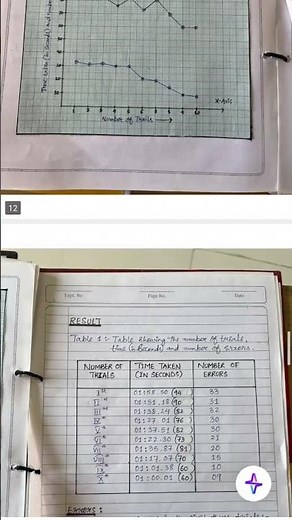 Time taken (in Seconds) and number
X-axis
1 2 3 4 5 6 7 8 9 10
Number of Trials →
12
Expt. No.
Page No.
Date
RESULT
Table 1:- Table showing the number of trials,
time (in seconds) and number of errors.
NUMBER OF TRIALS | TIME TAKEN (IN SECONDS) | NUMBER OF ERRORS
Ist | 01:58.50 (94 | 33
IInd | 01:51.18 (90 | 31
IIIrd | 01:38.24 (82 | 32
IVth | 01:27.01 (76 | 30
Vth | 01:37.51 (82 | 30
VIth | 01:22.30 (73 | 21
VIIth | 01:35.87 (81 | 20
VIIIth | 01:17.07 (70 | 15
IXth | 01:01.38 (60 | 10
Xth | 01:00.01 (60) | 09